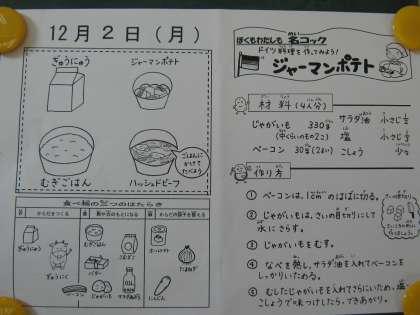 12月2日(月)
ぎゅうにゅう
ジャーマンポテト
むぎごはん
ハッシュドビーフ
ごはんに
かけて
たべよう
食べ物の3つのはたらき
ぎゅうにゅう
ぎゅうにく
ベーコン
むぎごはん
バター
じゃがいも
サラダあぶら
ホールトマト
たまねぎ
にんじん
ぼくもわたしも 名コック
ドイツ料理を作ってみよう!
ジャーマンポテト
材料(4人分)
じゃがいも 330g
(中くらいのもの2こ)
ベーコン 30g(2まい)
サラダ油
塩
こしょう 少々
作り方
① ベーコンは、1cmのはばに切る。
② じゃがいもは、さいの目切りにして
水にさらす。
③ じゃがいもをむす。
④ なべを熱し、サラダ油を入れてベーコンを
しっかりいためる。
⑤ むしたじゃがいもを入れてさらにいため、塩
こしょうで味つけしたら、できあがり。